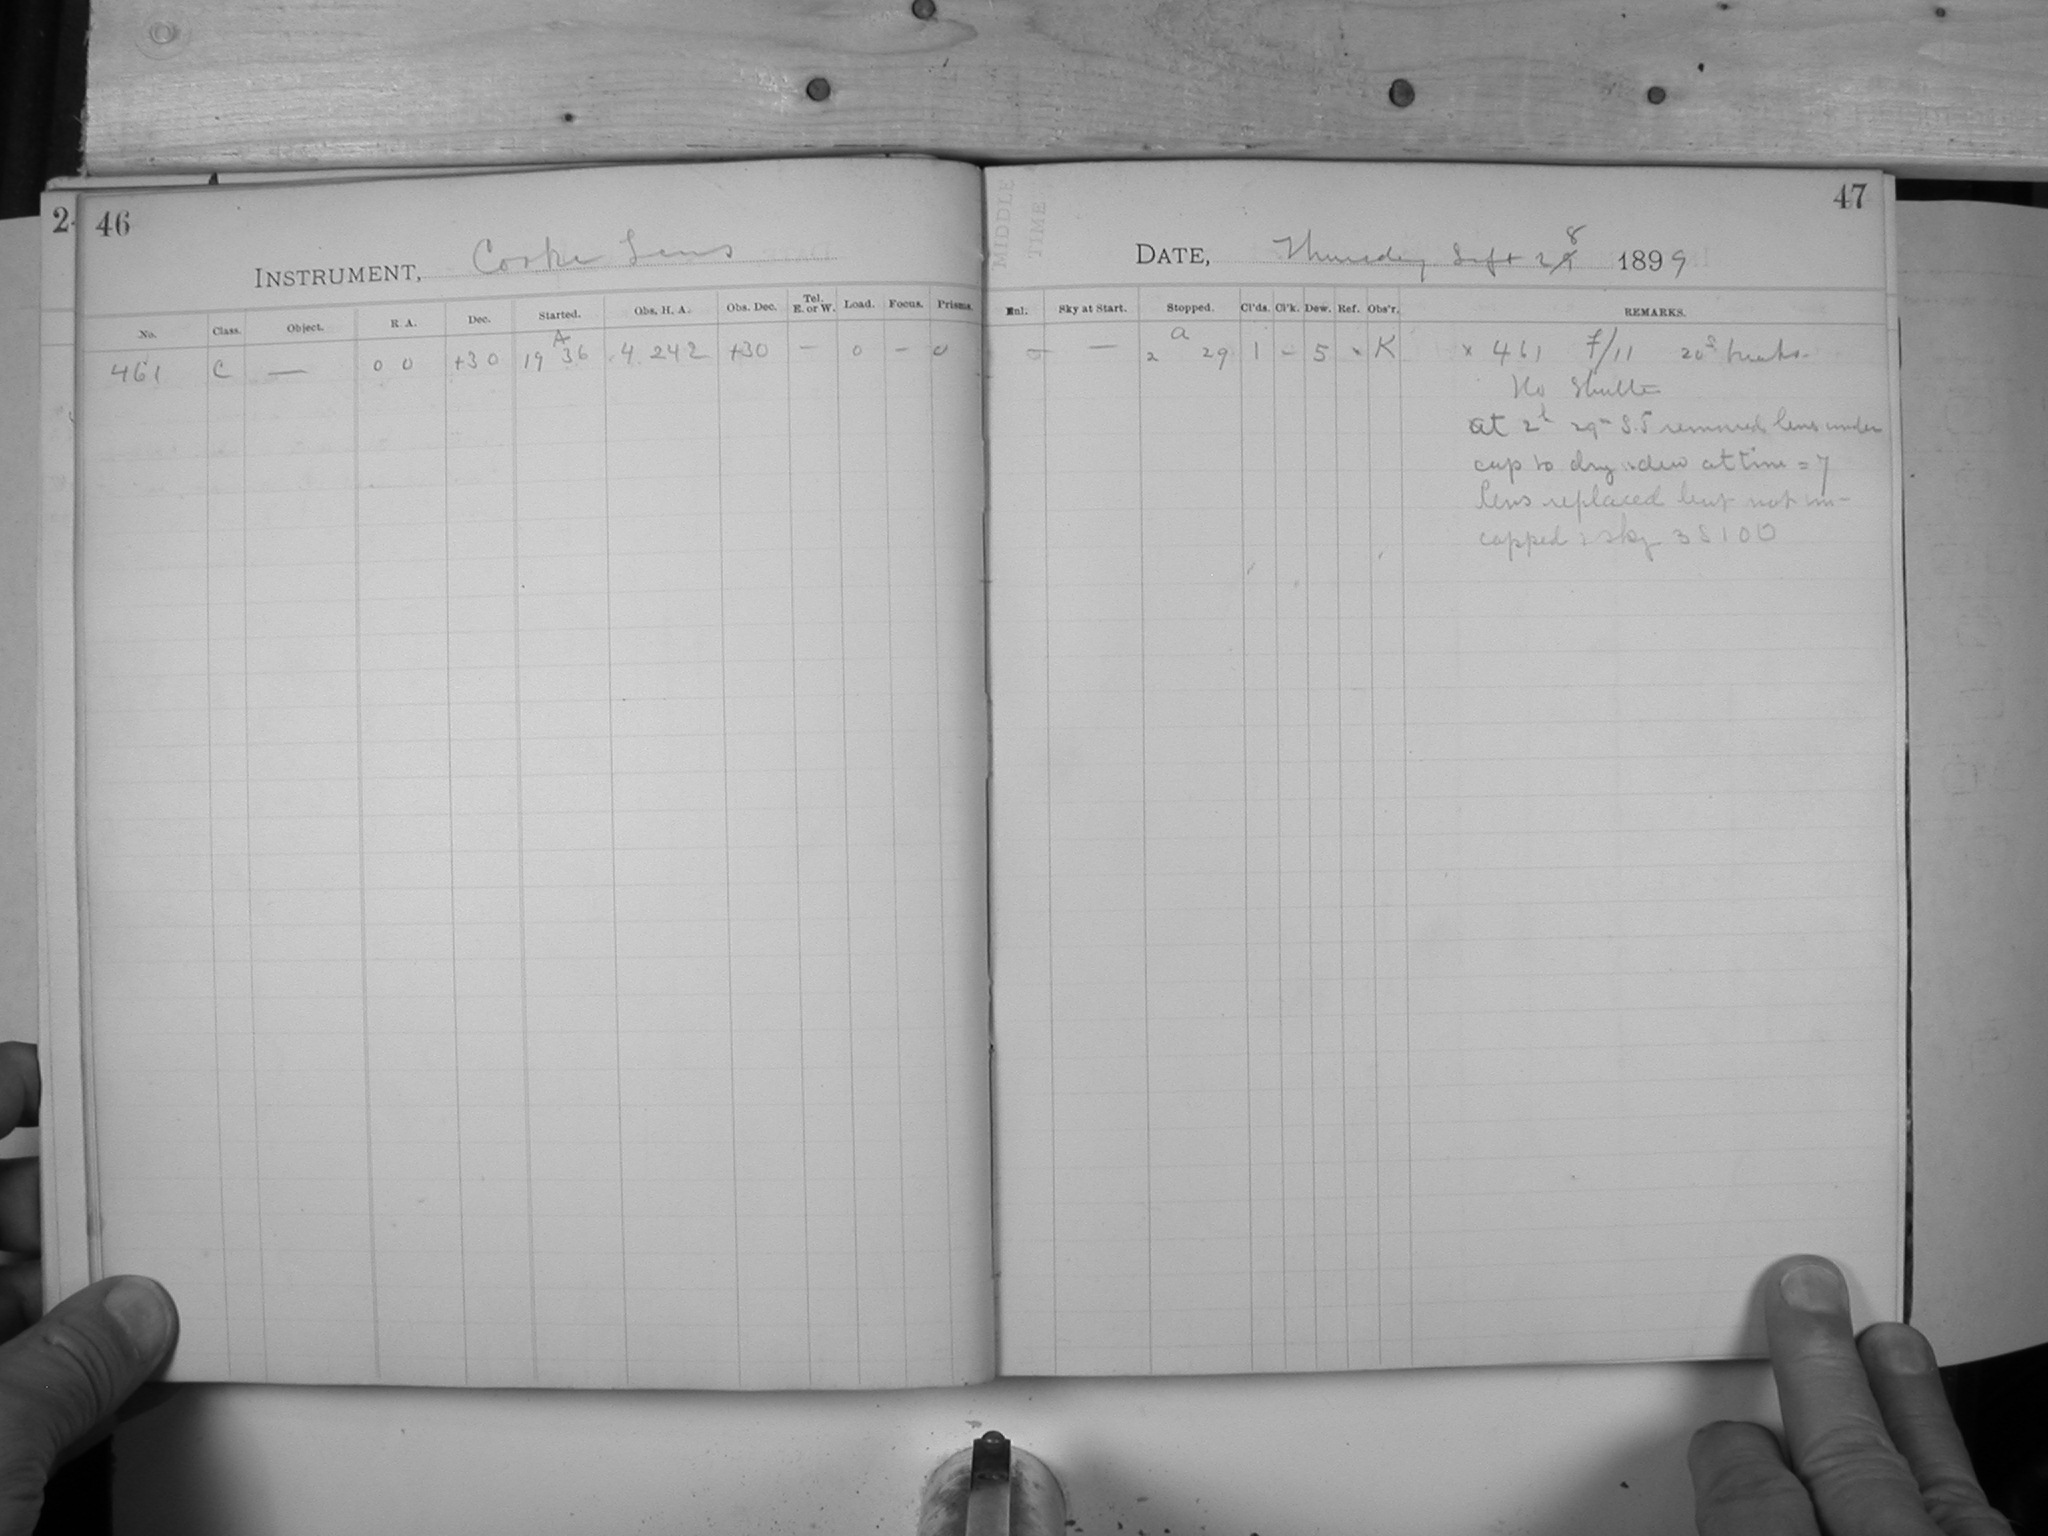 2
46
INSTRUMENT, Cooke Lens
No. Class. Object. R. A. Dec. Started. Obs. H. A. Obs. Dec. Tel. E. or W. Load. Focus. Prisms.
A
461 C — 0 0 +30 19 36 4 242 +30 — 0 – 0
47
MIDDLE
TIME
8
DATE, Thursday Sept 29 1899
Enl. Sky at Start. Stopped. Cl'ds. Cl'k. Dew. Ref. Obs'r. REMARKS.
a
0 — 2 29 1 – 5 K × 461 f/11 20s breaks.
No Shutter
at 2h 29m S.T removed lens under
cap to dry : dew at time = 7
lens replaced but not un-
capped : sky 3S100